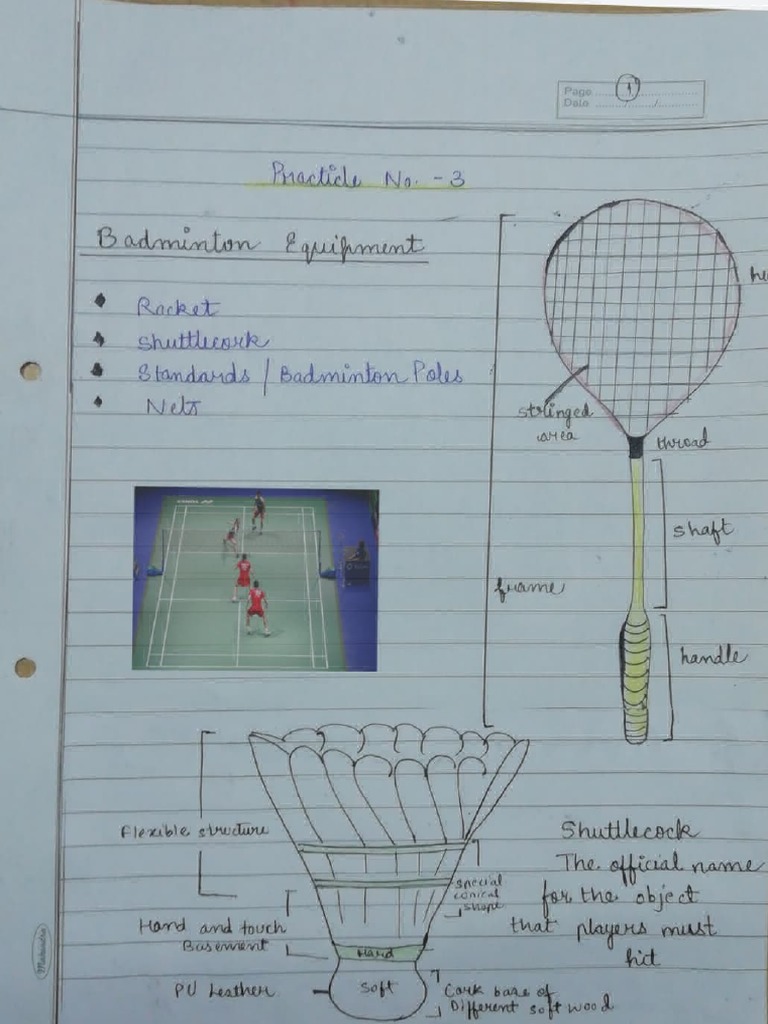 Page 1
Date
Practicle No. - 3
Badminton Equipment
Racket
Shuttlecork
Standards / Badminton Poles
Nets
he
stringed
area
throad
shaft
frame
handle
Flexible structure
Hand and touch
Basement
special
conical
shape
Hard
PU Leather
Soft
Cork base of
Different soft wood
Shuttlecock
The official name
for the object
that players must
hit